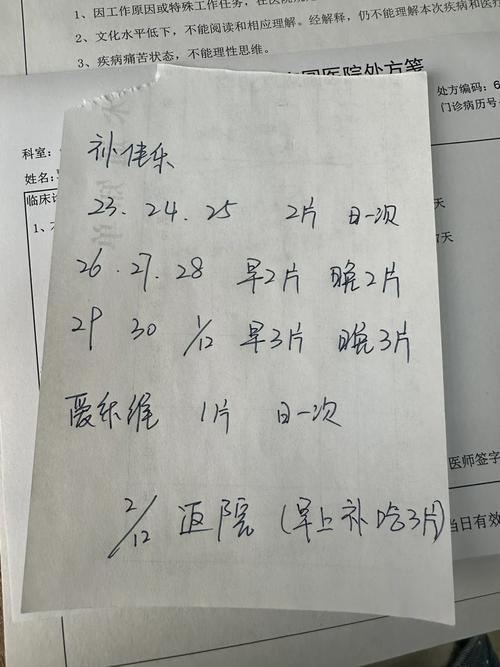 1、因工作原因或特殊工作任务，在医院
2、文化水平低下，不能阅读和相应理解。经解释，仍不能理解本次疾病和医
3、疾病痛苦状态，不能理性思维。
医院处方笺
处方编码：6
门诊病历号
科室：
姓名：
临床
1、
天
7天
补佳乐
23. 24. 25 2片 日一次
26. 27. 28 早2片 晚2片
29 30 1/12 早3片 晚3片
爱乐维 1片 日一次
2/12 返院 (早上补哈3片)
医师签字
当日有效